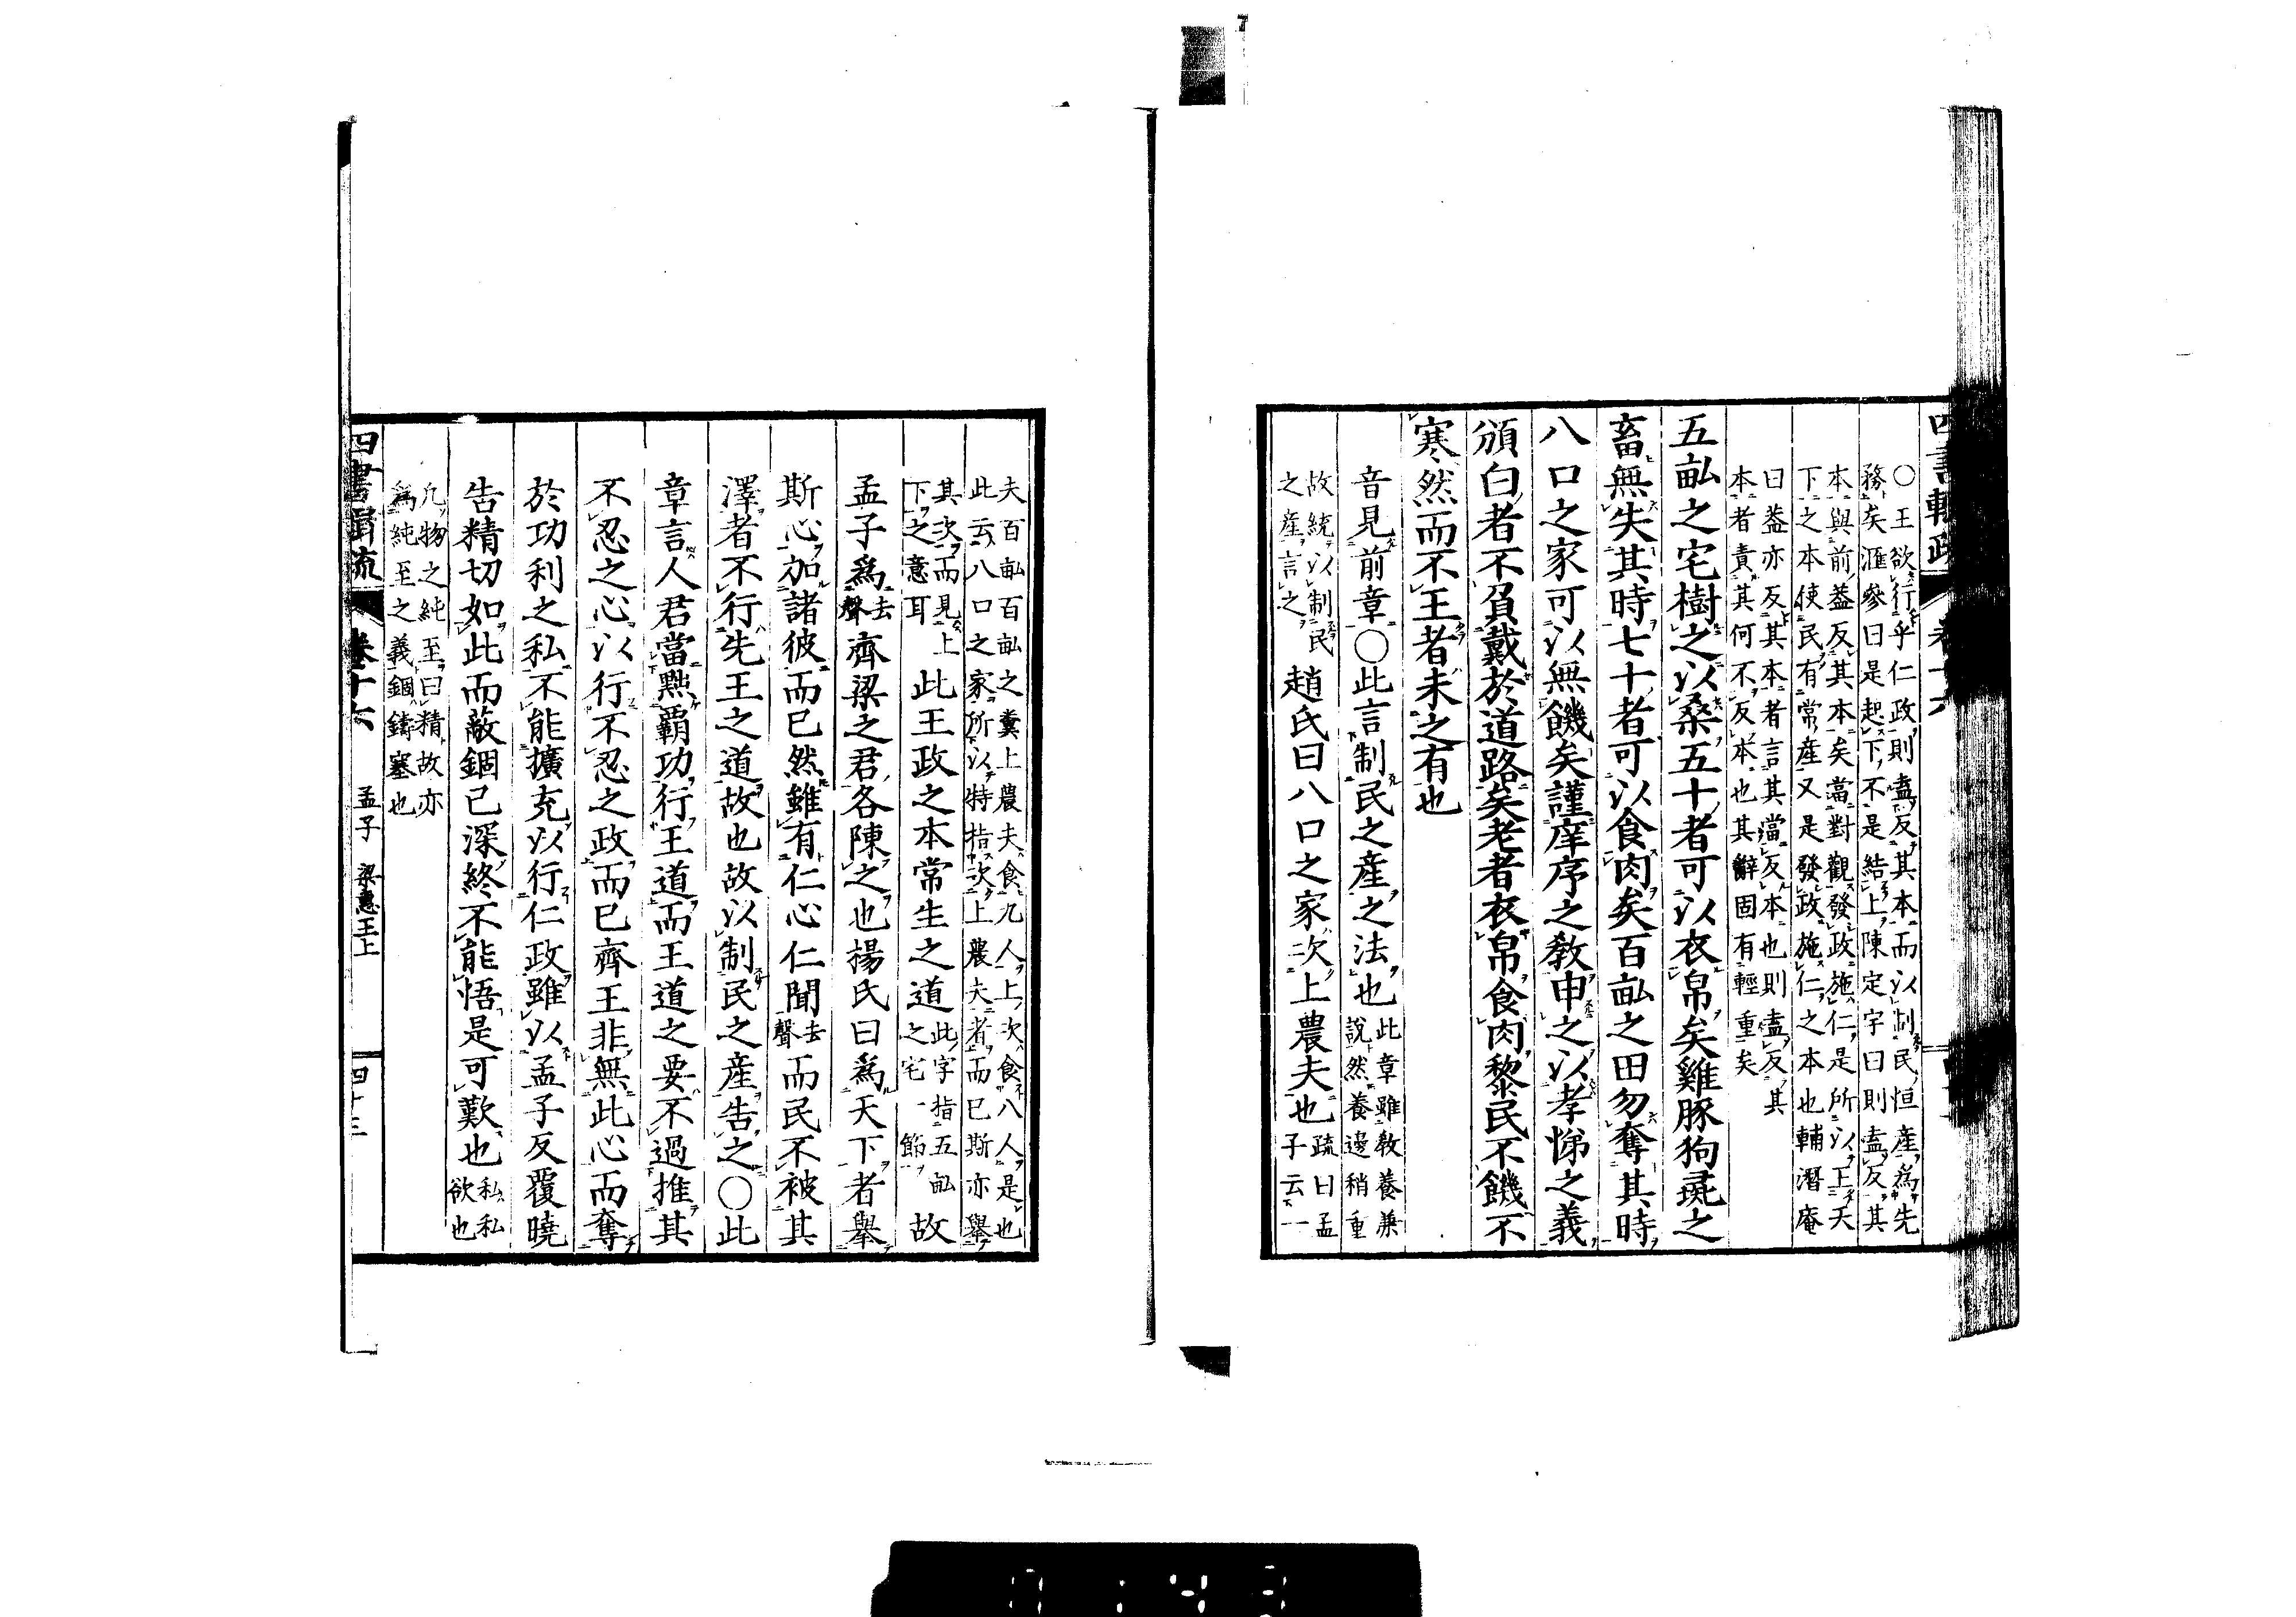 ○王欲行乎仁政則盍反其本而以制民恒産爲先
務矣滙參曰是起下不是結上陳定宇曰則盍反其
本與前蓋反其本矣當對觀發政施仁是所以王天
下之本使民有常産又是發政施仁之本也輔潛庵
曰蓋亦反其本者言其當反本也則盍反其
本者責其何不反本也其辭固有輕重矣
五畝之宅樹之以桑五十者可以衣帛矣雞豚狗彘之
畜無失其時七十者可以食肉矣百畝之田勿奪其時
八口之家可以無饑矣謹庠序之敎申之以孝悌之義
頒白者不負戴於道路矣老者衣帛食肉黎民不饑不
寒然而不王者未之有也
音見前章○此言制民之産之法也此章雖敎養兼
說然養邊稍重
故統以制民
之産言之趙氏曰八口之家次上農夫也疏曰孟
子云一
夫百畝百畝之糞上農夫食九人上次食八人是也
此云八口之家所以特指次上農夫者而已斯亦舉
其次而見上
下之意耳此王政之本常生之道此字指五畝
之宅一節故
孟子爲去
聲齊梁之君各陳之也楊氏曰爲天下者舉
斯心加諸彼而已然雖有仁心仁聞去
聲而民不被其
澤者不行先王之道故也故以制民之産告之○此
章言人君當黜霸功行王道而王道之要不過推其
不忍之心以行不忍之政而已齊王非無此心而奪
於功利之私不能擴充以行仁政雖以孟子反覆曉
告精切如此而蔽錮已深終不能悟是可歎也私私
欲也
凡物之純至曰精故亦
爲純至之義錮鑄塞也
四書輯疏 卷十六 孟子 梁惠王上 四十三